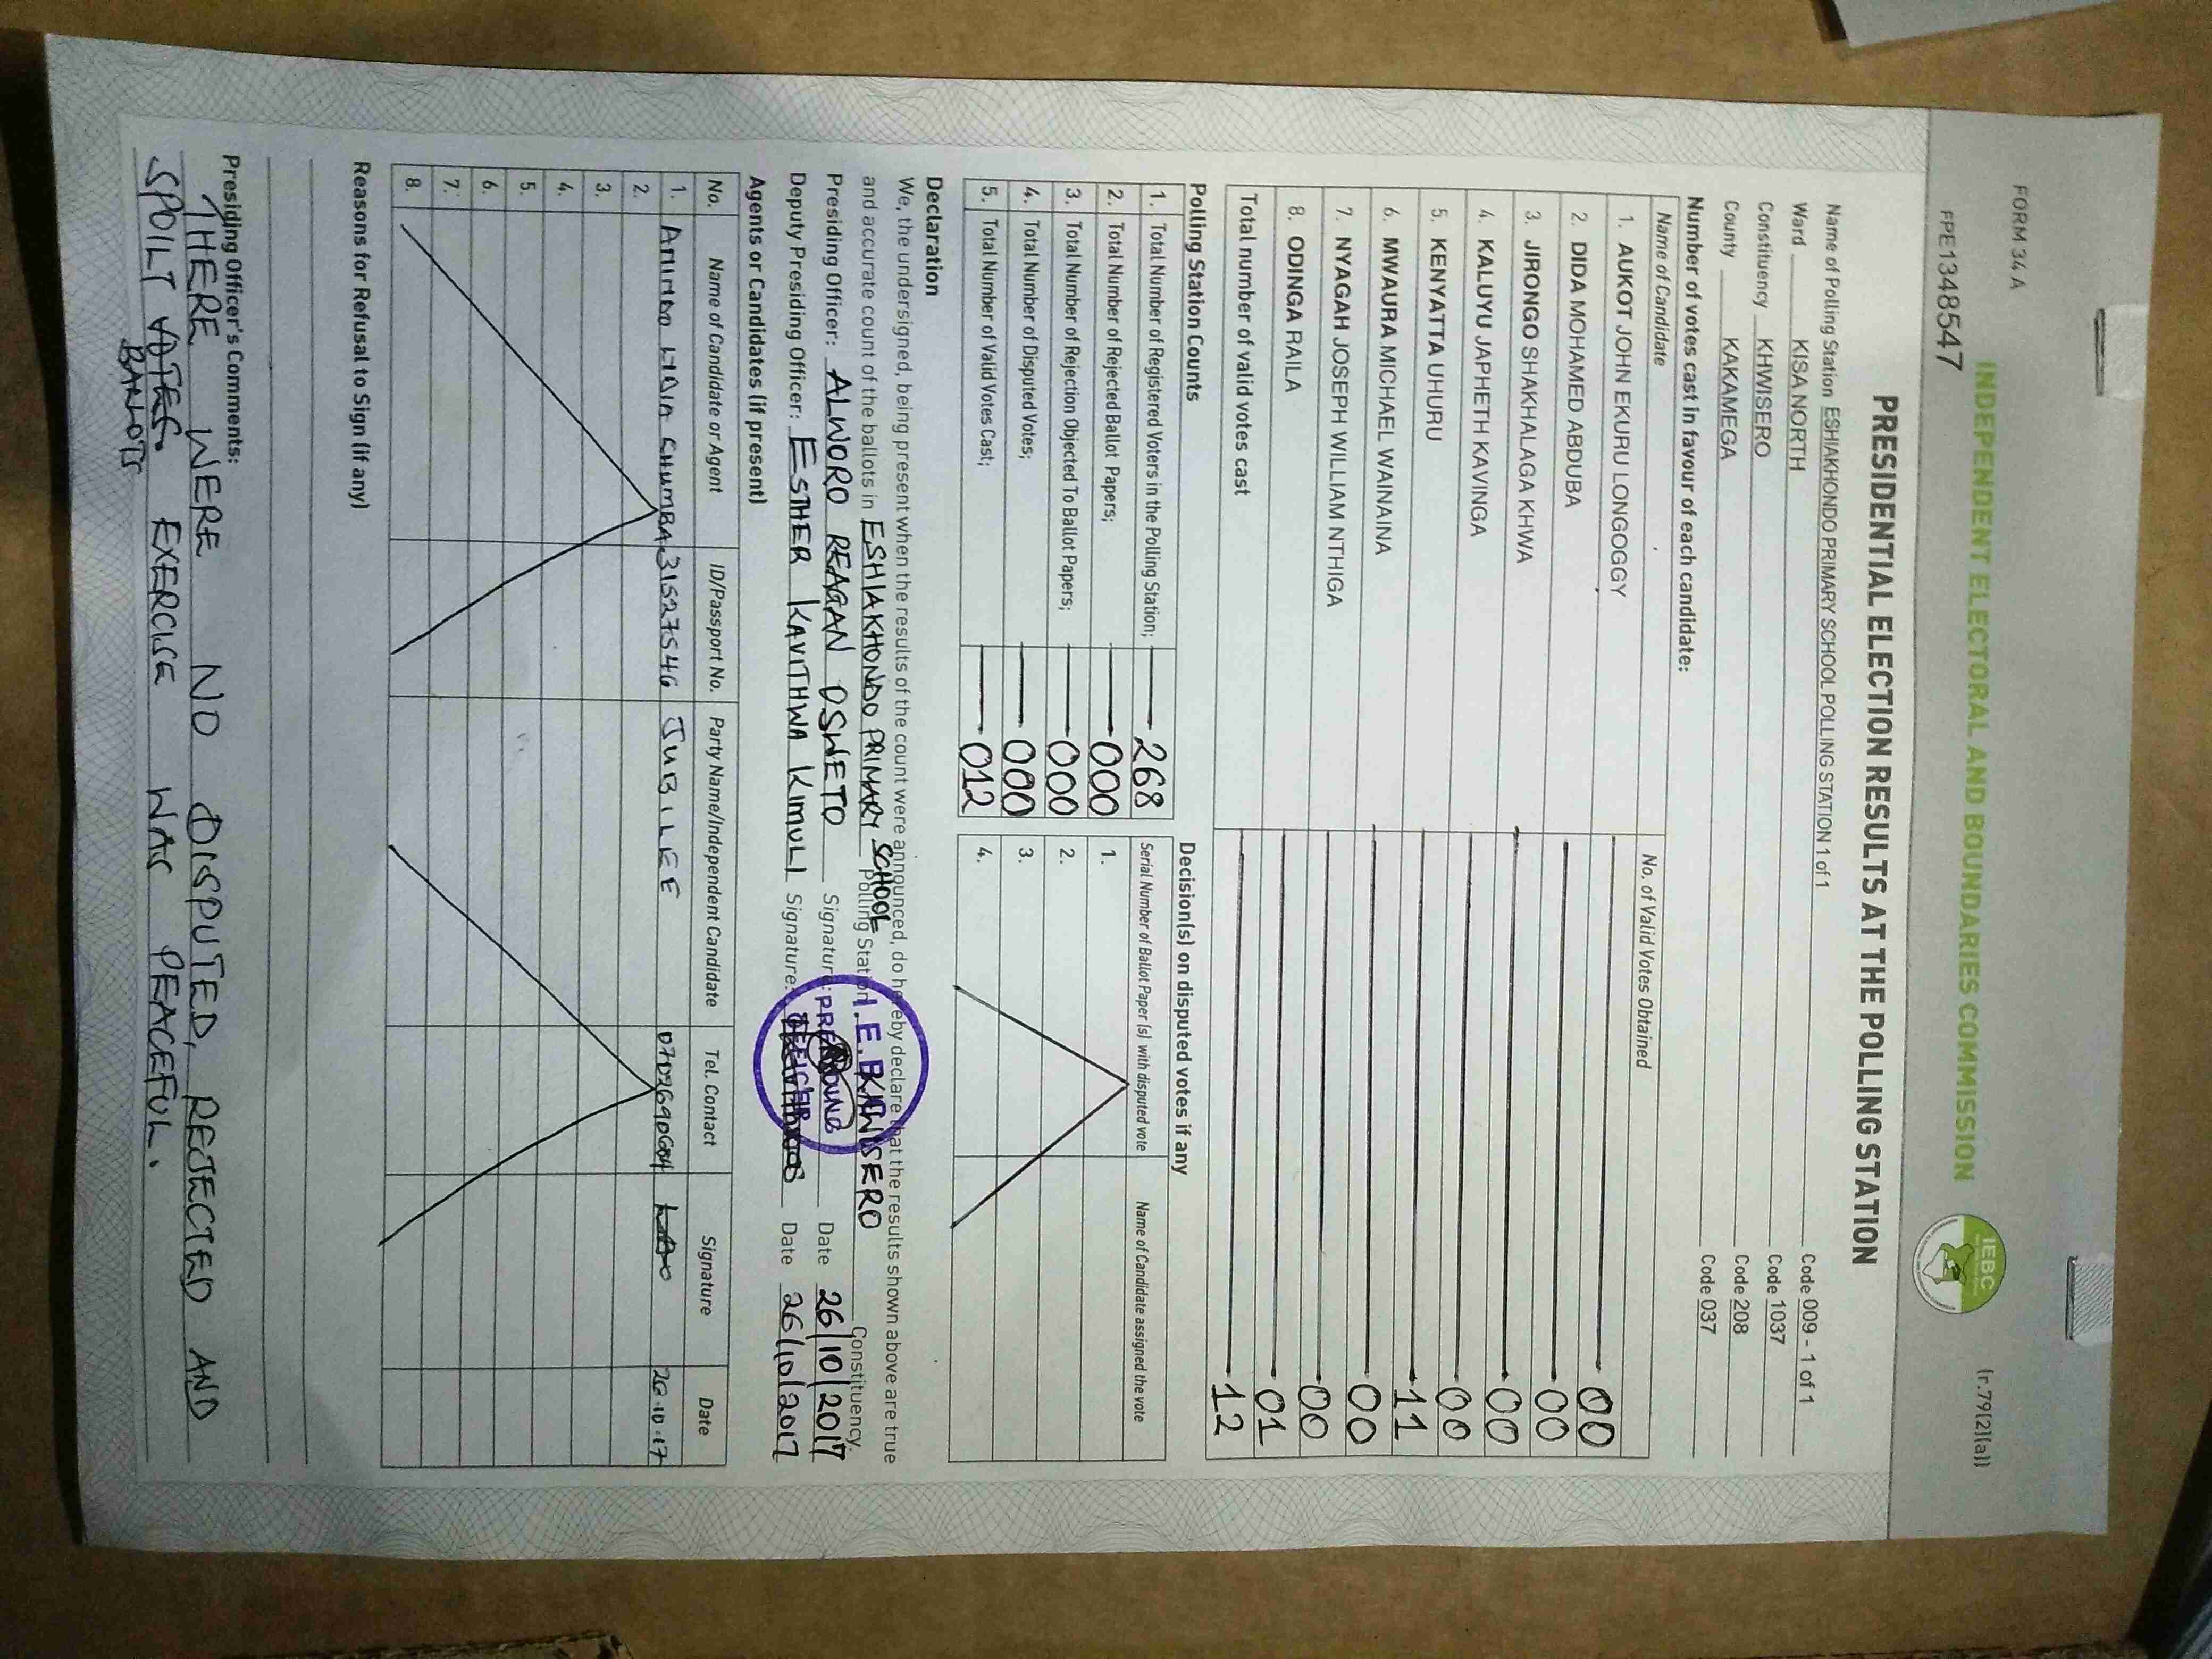 FORM 34 A
(r.79(2)(a))
INDEPENDENT ELECTORAL AND BOUNDARIES COMMISSION
IEBC
FPE1348547
PRESIDENTIAL ELECTION RESULTS AT THE POLLING STATION
Name of Polling Station ESHIAKHONDO PRIMARY SCHOOL POLLING STATION 1 of 1 Code 009 - 1 of 1
Ward KISA NORTH Code 1037
Constituency KHWISERO Code 208
County KAKAMEGA Code 037
Number of votes cast in favour of each candidate:
Name of Candidate No. of Valid Votes Obtained
1. AUKOT JOHN EKURU LONGOGGY 00
2. DIDA MOHAMED ABDUBA 00
3. JIRONGO SHAKHALAGA KHWA 00
4. KALUYU JAPHETH KAVINGA 00
5. KENYATTA UHURU 11
6. MWAURA MICHAEL WAINAINA 00
7. NYAGAH JOSEPH WILLIAM NTHIGA 00
8. ODINGA RAILA 01
Total number of valid votes cast 12
Polling Station Counts
1. Total Number of Registered Voters in the Polling Station; 268
2. Total Number of Rejected Ballot Papers; 000
3. Total Number of Rejection Objected To Ballot Papers; 000
4. Total Number of Disputed Votes; 000
5. Total Number of Valid Votes Cast; 012
Decision(s) on disputed votes if any
Serial Number of Ballot Paper (s) with disputed vote Name of Candidate assigned the vote
1.
2.
3.
4.
Declaration
We, the undersigned, being present when the results of the count were announced, do hereby declare that the results shown above are true
and accurate count of the ballots in ESHIAKHONDO PRIMARY SCHOOL Polling Station KHWISERO Constituency.
Presiding Officer: ALWORO REAGAN OSWETO Signature: Date 26/10/2017
Deputy Presiding Officer: ESTHER KAVITHWA KIMULI Signature: Date 26/10/2017
I.E.B.C
OFFICER
Agents or Candidates (if present)
No. Name of Candidate or Agent ID/Passport No. Party Name/Independent Candidate Tel. Contact Signature Date
1. CHUMBA 31527546 JUBILEE 26.10.17
2.
3.
4.
5.
6.
7.
8.
Reasons for Refusal to Sign (if any)
Presiding Officer's Comments:
THERE WERE NO DISPUTED, REJECTED AND
SPOILT VOTES. EXERCISE WAS PEACEFUL.
BALLOTS